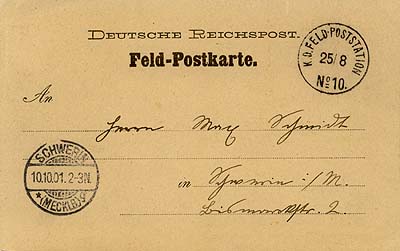 DEUTSCHE REICHSPOST.
Feld-Postkarte.
K.D. FELD-POSTSTATION
25/8
No 10.
An
Herrn Max Schmidt
SCHWERIN
10.10.01. 2-3N.
* (MECKLB)
in Schwerin i/M.
Bismarckstr. 2.